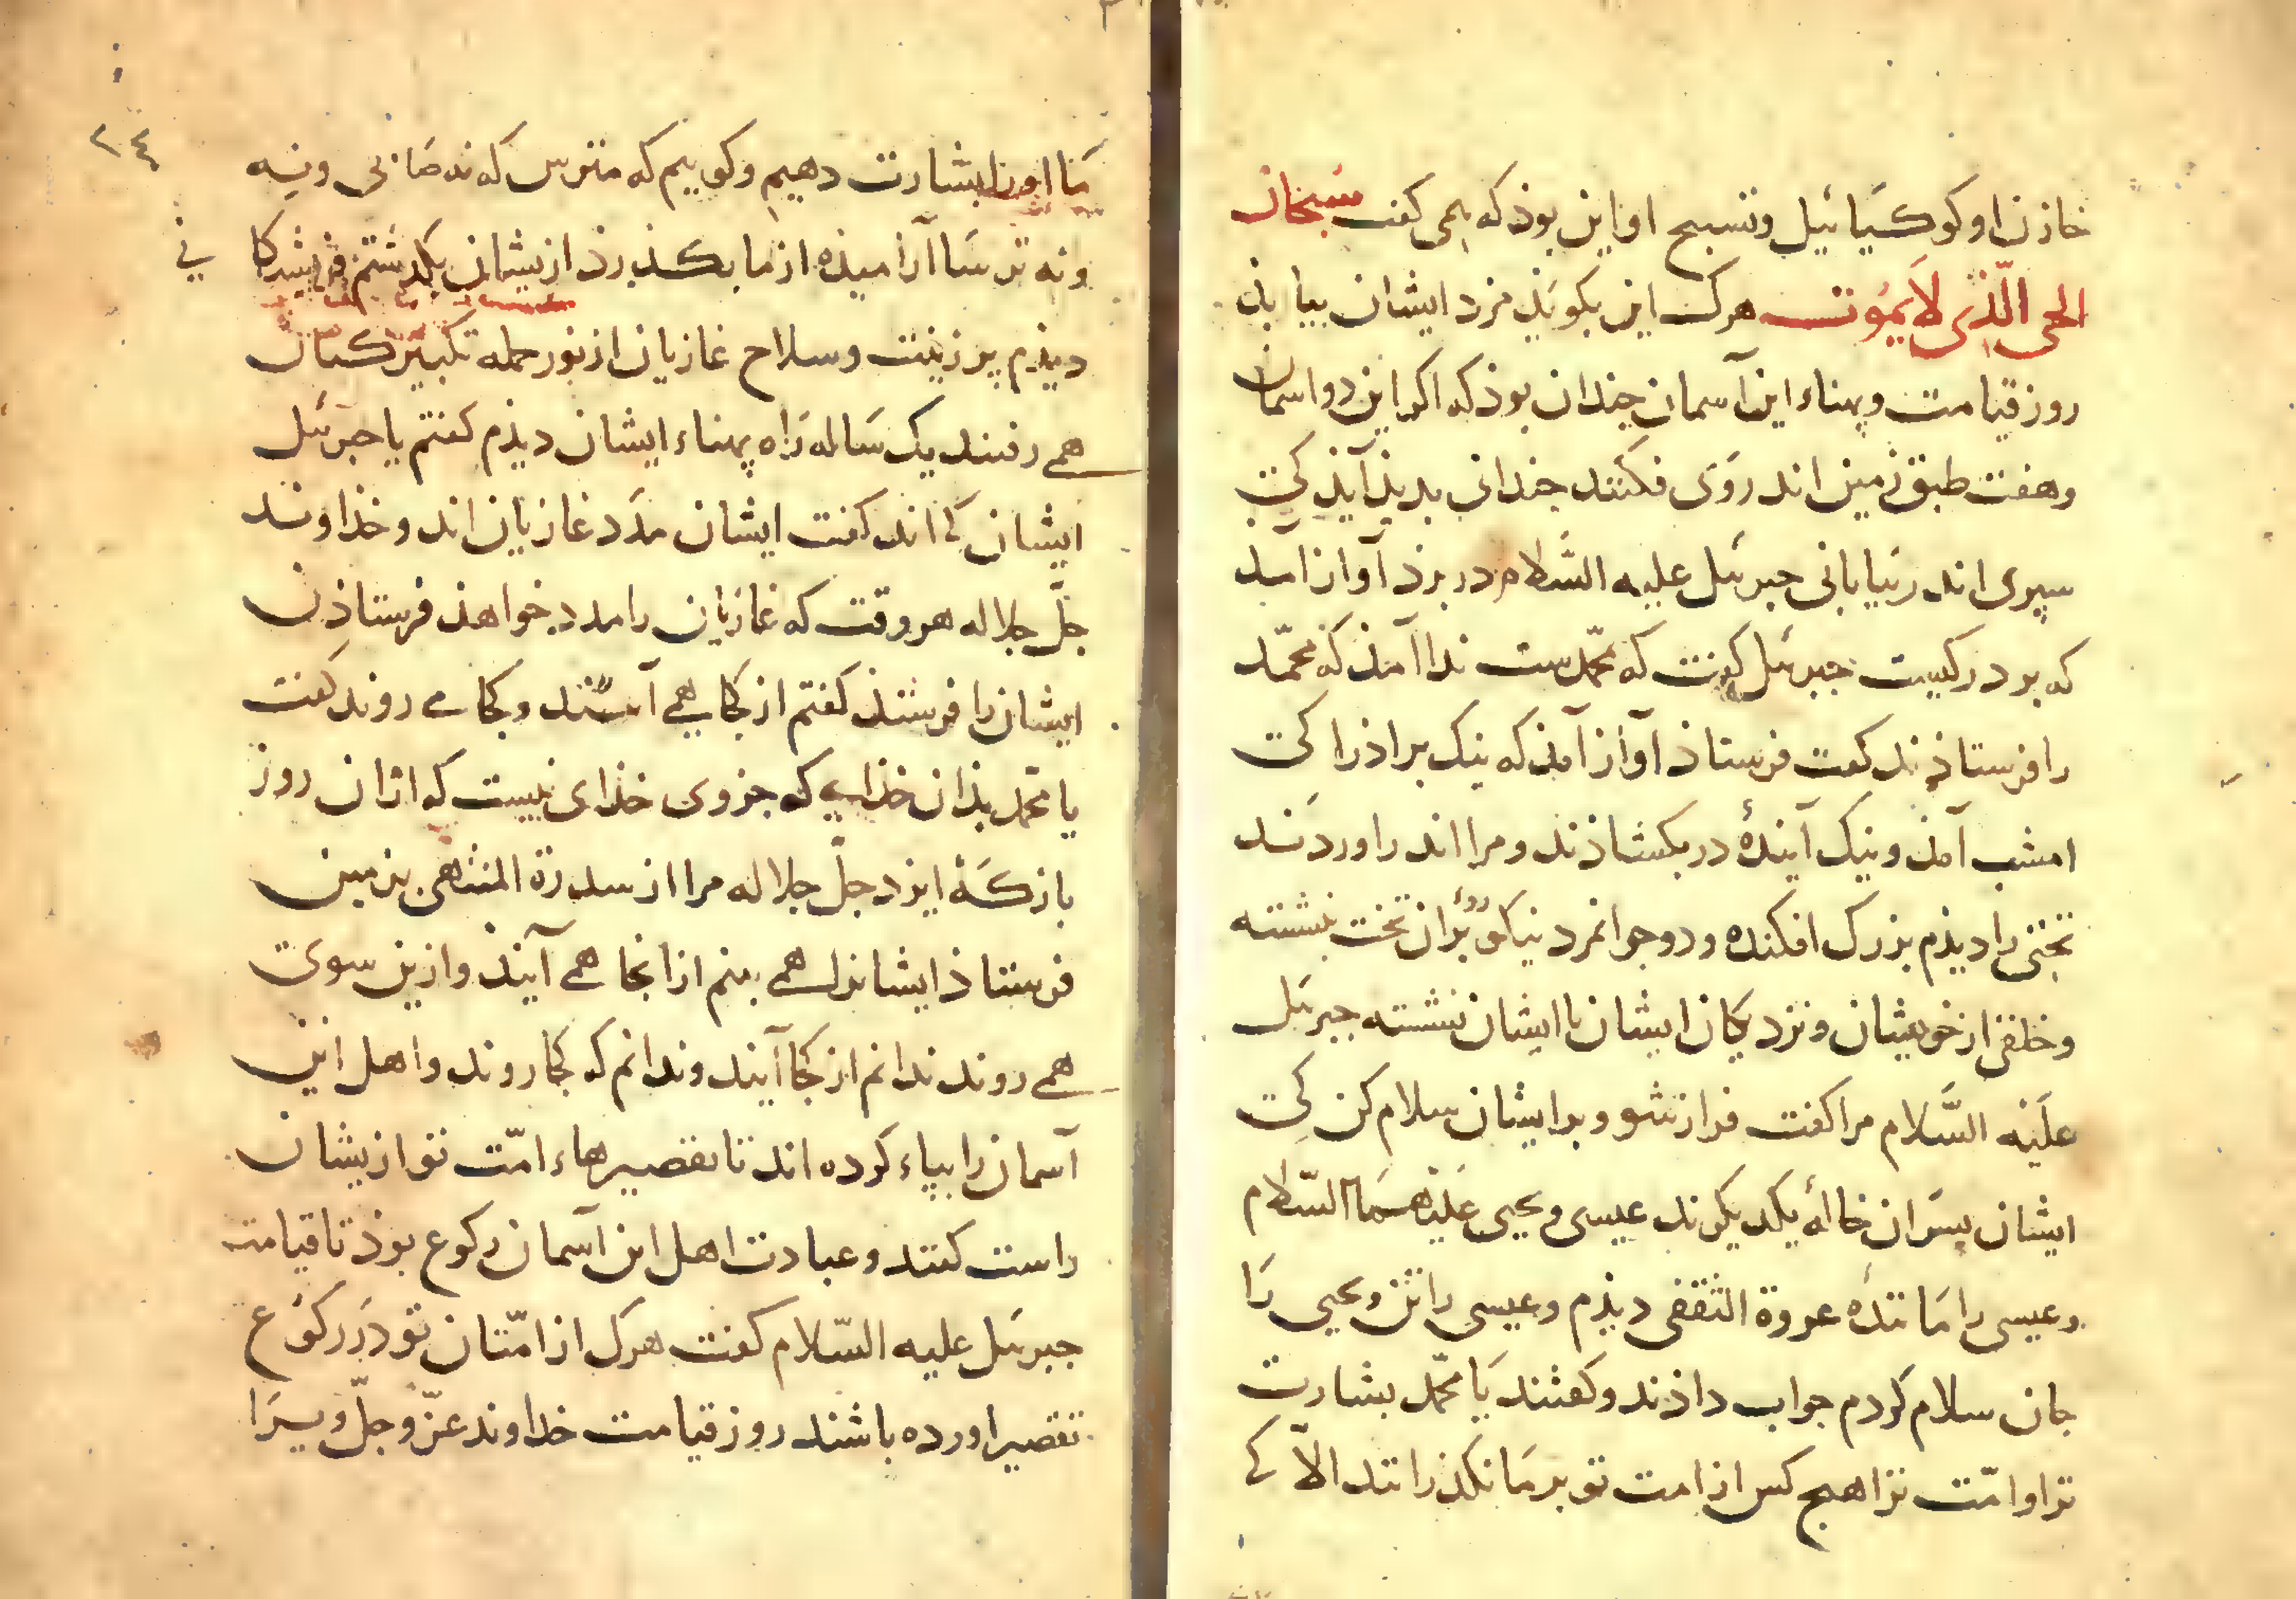 خازن او کوکیائیل و تسبیح او این بوذ که همی کفت سبحان
الحی الّذی لا یموت هرک این بکویذ مزد ایشان بیابذ
روز قیامت و پهناء این آسمان جندان بوذ که اکر این دو اسمان
و هفت طبق زمین اندروی فکنند جندانی بدیذ آیذ کی
سپری اندر بیابانی جبرئل علیه السّلام در بزد آواز آمد
که بر در کیست جبرئل کفت که محمّدست ندا آمذ که محمّد
را فرستاذند کفت فرستاذ آواز آمذ که نیک براذرا کی
امشب آمذ و نیک آیندۀ در بکشاذند و مرا اندر اوردند
تختی را دیذم بزرک افکنده و دو جوانمرد نیکو روی بران تخت نشسته
و خلقی از خویشان و نزدیکان ایشان با ایشان نشسته جبرئل
علیه السّلام مرا کفت فراز شو و بر ایشان سلام کن کی
ایشان پسران خالۀ یکدیکرند عیسی و یحیی علیهما السّلام
و عیسی را مانندۀ عروة الثقفی دیذم و عیسی را تن و یحیی را
جان سلام کردم جواب داذند و کفتند یا محمّد بشارت
ترا و امّت ترا هیج کس از امت تو بر ما نکذرانند الّا کی
۲٤
ما او را بشارت دهیم و کوییم که مترس که نه ضانی و نه
و نه ترسا آرامیذه از ما بکذرذ ازیشان بکذشتم فریشتکانی
دیذم بر زینت و سلاح غازیان از نور جمله تکبیر کنان
همی رفتند یک ساله راه پهناء ایشان دیذم کفتم یا جبرئل
ایشان کی اند کفت ایشان مدد غازیان اند و خذاوند
جلّ جلاله هر وقت که غازیان را مدد خواهذ فرستاذن
ایشان را فرستذ کفتم از کجا همی آیند و کجا می روند کفت
یا محمّد بذان خذایی که جز وی خذای نیست که ازان روز
باز که ایزد جلّ جلاله مرا از سدرة المنتهی بزمین
فرستاذ ایشانرا همی بینم از انجا همی آیند و ازین سوی
همی روند ندانم از کجا آیند و ندانم که کجا روند و اهل این
آسمان را بپاء کرده اند تا تقصیرهاء امّت تو ازیشان
راست کنند و عبادت اهل این آسمان رکوع بوذ تا قیامت
جبرئل علیه السّلام کفت هرک از امّتان تو در رکوع
تقصیر اورده باشند روز قیامت خداوند عزّ و جلّ ویرا